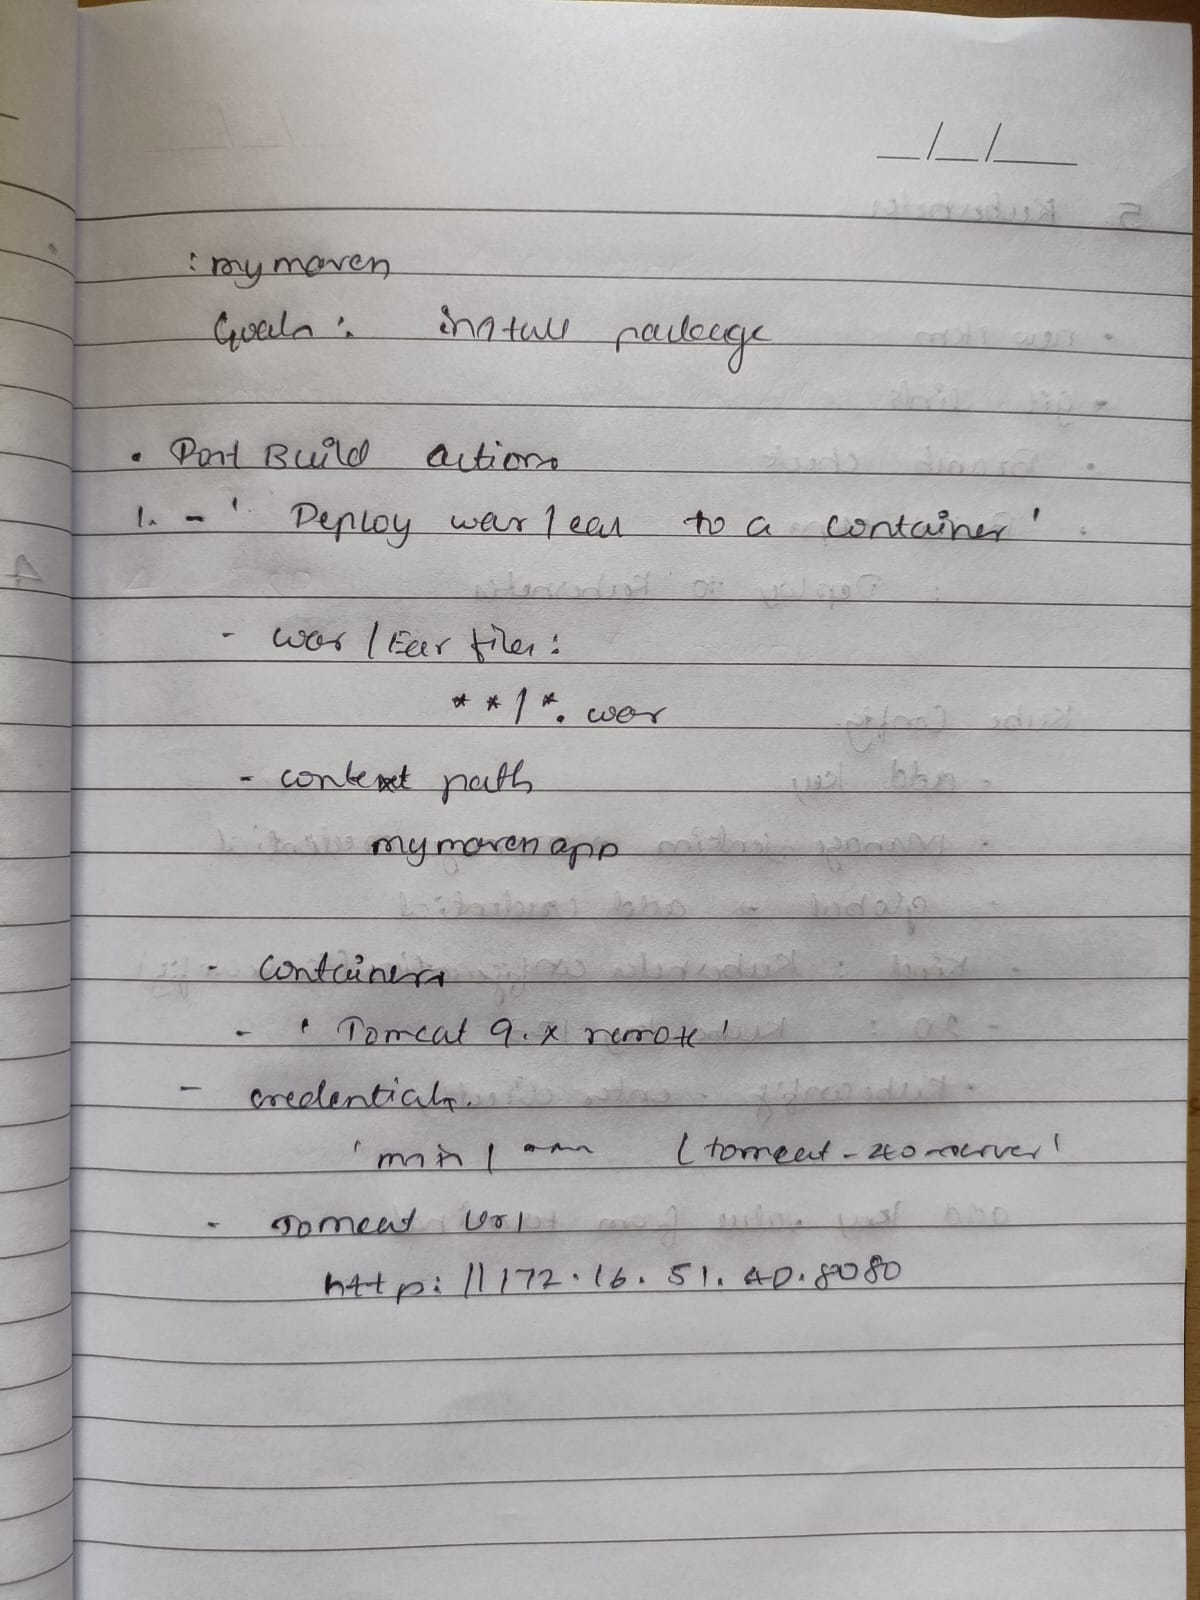 : mymaven
Goals : install package
• Post Build actions
1. - ' Deploy war/ear to a container '
- war / Ear files :
**/*. war
- context path
mymavenapp
- containers
- ' Tomcat 9.x remote '
- credentials.
' (tomcat - server '
- Tomcat Url
http: //172.16.51.40.8080